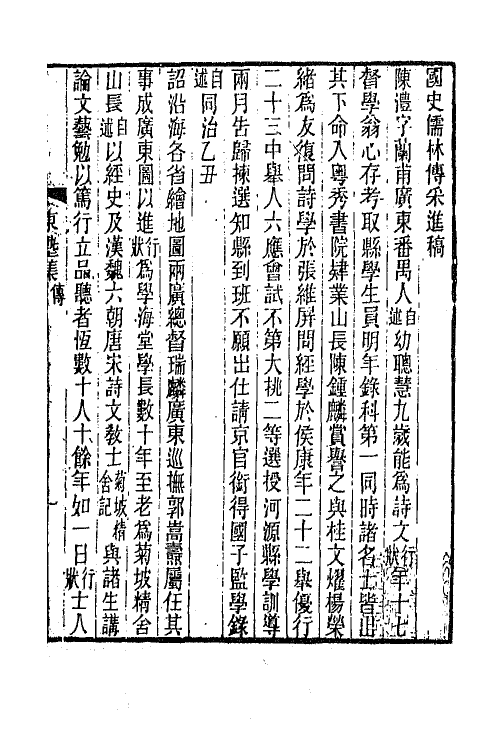 國史儒林傳采進稿
陳澧字蘭甫廣東番禺人自述幼聰慧九歲能爲詩文行狀年十七
督學翁心存考取縣學生員明年錄科第一同時諸名士皆出
其下命入粤秀書院肄業山長陳鍾麟賞譽之與桂文燿楊榮
緒爲友復問詩學於張維屏問經學於侯康年二十二舉優行
二十三中舉人六應會試不第大挑二等選授河源縣學訓導
兩月告歸揀選知縣到班不願出仕請京官銜得國子監學錄
自述同治乙丑
詔沿海各省繪地圖兩廣總督瑞麟廣東巡撫郭嵩燾屬任其
事成廣東圖以進行狀爲學海堂學長數十年至老爲菊坡精舍
山長自述以經史及漢魏六朝唐宋詩文敎士菊坡精舍記與諸生講
論文藝勉以篤行立品聽者恆數十人十餘年如一日行狀士人
東塾集 傳
一